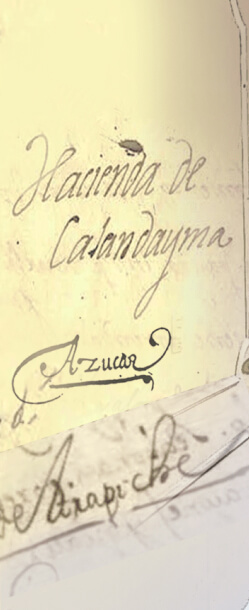 Hacienda de
Calandayma
Azucar
de Trapiche